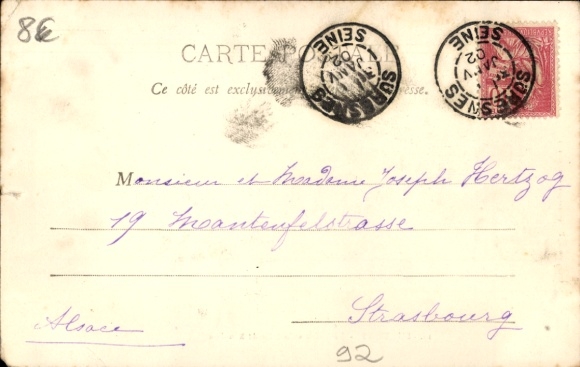 86
CARTE POSTALE
Ce côté est exclusivement
SURESNES SEINE JANV 02
SURESNES SEINE JANV 02
Monsieur et Madame Joseph Hertzog
19 Mantenfelstrasse
Strasbourg
Alsace
92